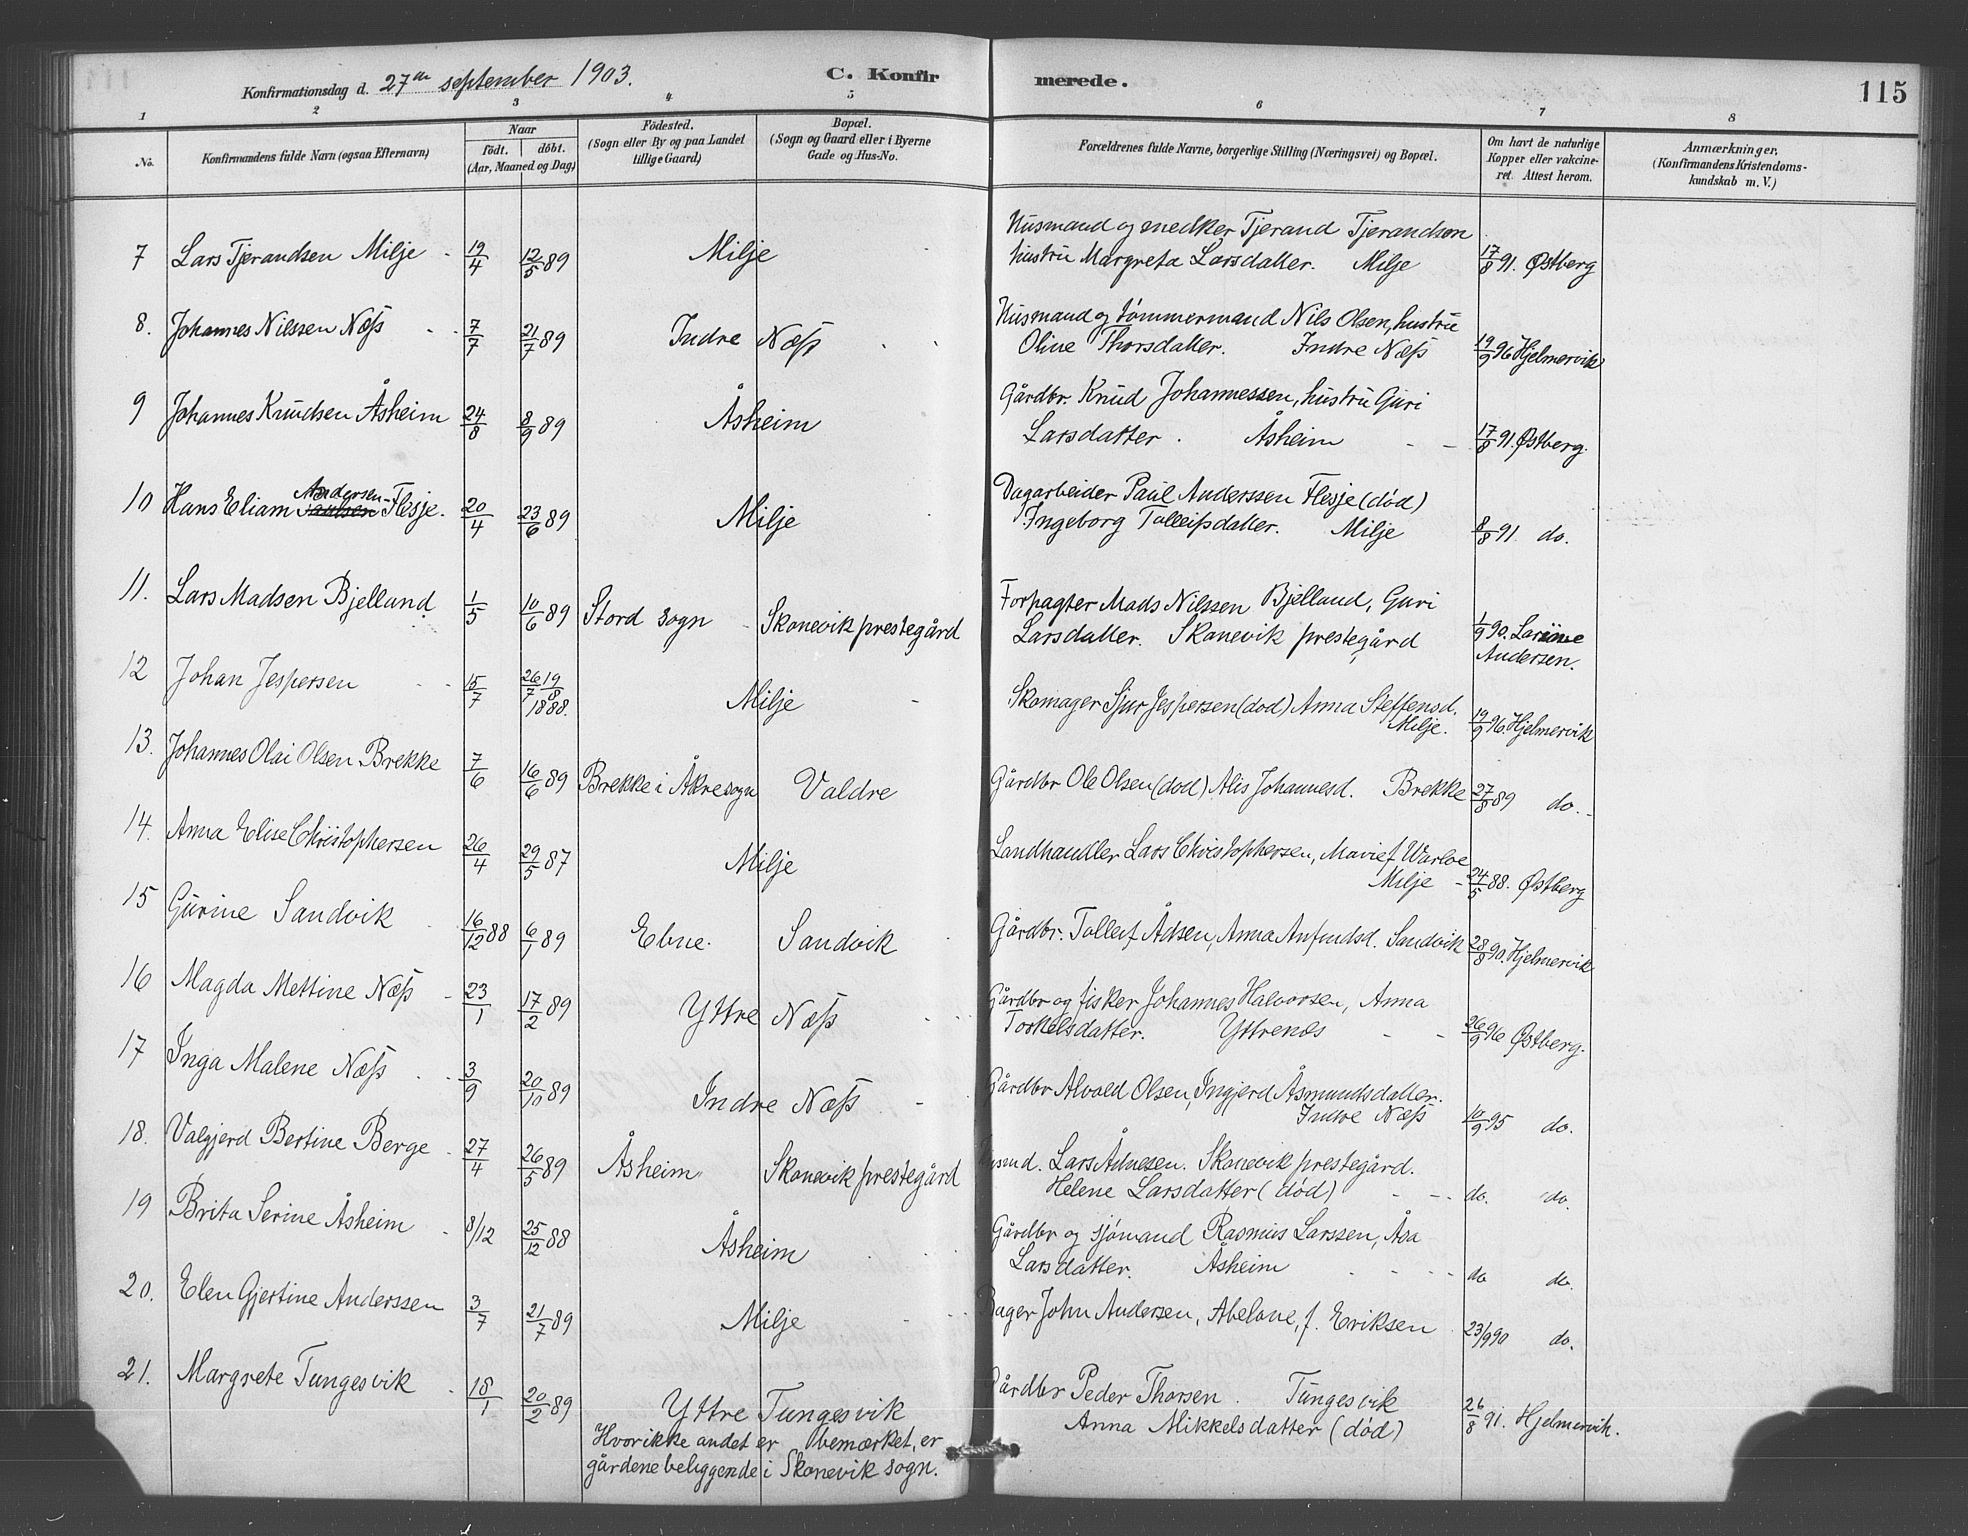 Konfirmationsdag d. 27de september 1903.
C. Konfirmerede.
115
1 2 3 4 5 6 7 8
No.
Konfirmandens fulde Navn (ogsaa Efternavn)
Naar
født. døbt.
(Aar, Maaned og Dag)
Födested.
(Sogn eller By og paa Landet
tillige Gaard)
Bopæl.
(Sogn og Gaard eller i Byerne
Gade og Hus-No.
Forældrenes fulde Navne, borgerlige Stilling (Næringsvei) og Bopæl.
Om havt de naturlige
Kopper eller vakcine-
ret. Attest herom.
Anmærkninger.
(Konfirmandens Kristendoms-
kundskab m. V.)
7 Lars Tjerandsen Milje 19/4 12/5 89 Milje Husmand og snedker Tjerand Tjerandson
hustru Margreta Larsdatter. Milje 17/8 91. Østberg
8. Johannes Nilssen Næss 7/7 21/7 89 Indre Næss Husmand og tømmermand Nils Olsen, hustru
Oline Thorsdatter. Indre Næss 19/9 96 Hjelmervik
9 Johannes Knudsen Åsheim 24/8 8/9 89 Åsheim Gårdbr. Knud Johannessen, hustru Guri
Larsdatter. Åsheim 17/8 91. Østberg.
10 Hans Eliam Paulsen Andersen Flesje. 20/4 23/6 89 Milje Dagarbeider Paul Anderssen Flesje (død)
Ingeborg Tolleifsdatter. Milje 8/8 91. do.
11. Lars Madsen Bjelland 1/5 10/6 89 Stord sogn Skonevik prestegård Forpagter Mads Nilssen Bjelland, Guri
Larsdatter. Skonevik prestegård 1/9 90. Larine
Andersen.
12 Johan Jespersen 15/7 26/7 19/8 1888. Milje Skomager Sjur Jespersen (død) Anna Steffensd.
Milje. 19/9 96. Hjelmervik
13. Johannes Olai Olsen Brekke 7/6 16/6 89 Brekke i Åkre sogn Valdre Gårdbr Ole Olsen (død) Alis Johannesd. Brekke 27/8 89 do.
14. Anna Elise Christophersen 26/4 29/5 87 Milje Landhandler Lars Christophersen, Marie f Warloe
Milje 24/5 88. Østberg
15 Gurine Sandvik 16/12 88 6/1 89 Ebne. Sandvik Gårdbr. Tolleif Ådsen, Anna Anfindsd. Sandvik 28/8 90. Hjelmervik
16 Magda Mettine Næss 23/1 17/2 89 Yttre Næss Gårdbr og fisker Johannes Halvorsen, Anna
Torkelsdatter. Yttrenæs 26/9 96 Østberg.
17 Inga Malene Næss 3/9 20/10 89 Indre Næss Gårdbr Alvald Olsen, Ingjerd Åsmundsdatter.
Indre Næss 10/9 95 do.
18. Valgjerd Bertine Berge 27/4 26/5 89 Åsheim Skonevik prestegård Husmd. Lars Ådnesen. Skonevik prestegård.
Helene Larsdatter (død) do. do.
19 Brita Serine Åsheim 8/12 25/12 88 Åsheim Gårdbr og sjømand Rasmus Larssen, Åsa
Larsdatter. Åsheim do do.
20. Elen Gjertine Anderssen 3/7 21/7 89 Milje Bager John Andersen, Abelone, f. Eriksen 23/9 90 do.
21. Margrete Tungesvik 18/1 20/2 89 Yttre Tungesvik Gårdbr Peder Thorsen. Tungesvik
Anna Mikkelsdatter (død) 26/8 91. Hjelmervik.
Hvor ikke andet er bemærket, er
gårdene beliggende i Skonevik sogn.